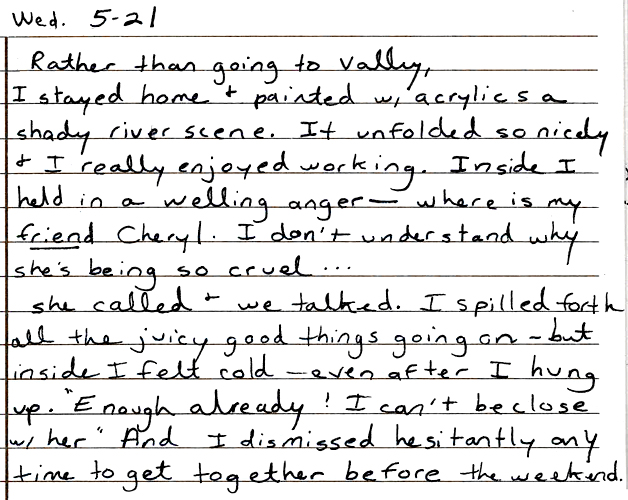 Wed. 5-21
Rather than going to Vally,
I stayed home + painted w/ acrylics a
shady river scene. It unfolded so nicely
+ I really enjoyed working. Inside I
held in a welling anger— where is my
friend Cheryl. I don't understand why
she's being so cruel...
she called + we talked. I spilled forth
all the juicy good things going on – but
inside I felt cold – even after I hung
up. "Enough already! I can't be close
w/ her" And I dismissed hesitantly any
time to get together before the weekend.